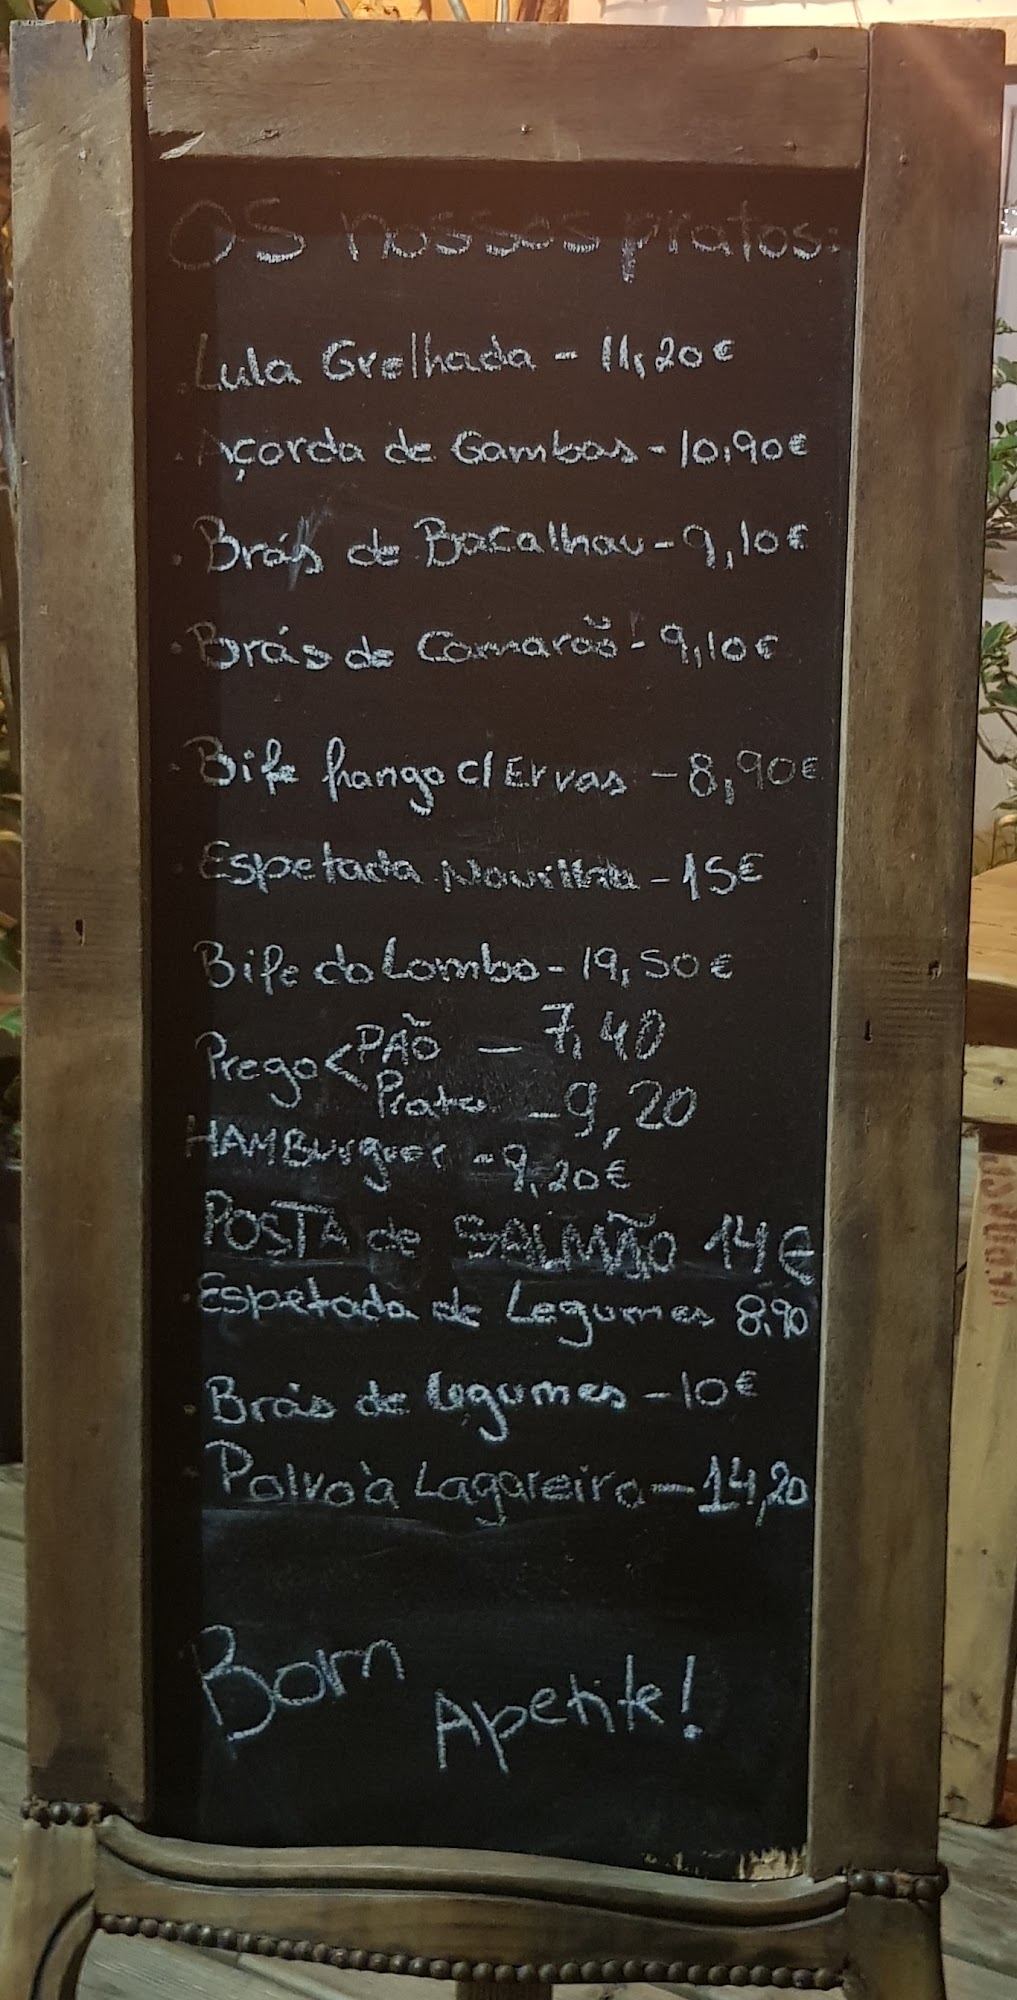 Os nossos pratos:
. Lula Grelhada - 11,20€
. Açorda de Gambas - 10,90€
. Brás de Bacalhau - 9,10€
. Brás de Camarão - 9,10€
. Bife frango c/ Ervas - 8,90€
. Espetada Novilho - 15€
Bife do Lombo - 19,50€
Prego < PÃO - 7,40
Prato - 9,20
HAMBurguer - 9,20€
POSTA de SALMÃO 14€
. Espetada de Legumes 8,90
. Brás de legumes - 10€
. Polvo à Lagareiro - 14,20
Bom
Apetite!